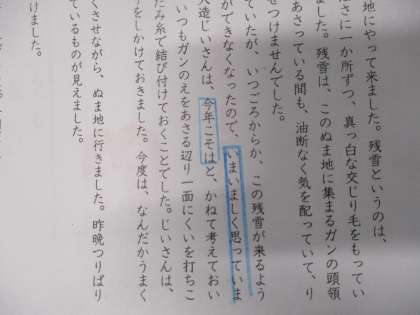 地にやって来ました。残雪というのは、
さに一か所ずつ、真っ白な交じり毛をもってい
ました。残雪は、このぬま地に集まるガンの頭領
あさっている間も、油断なく気を配っていて、り
せつけませんでした。
ていたが、いつごろからか、この残雪が来るよう
ができなくなったので、いまいましく思っていま
造じいさんは、今年こそはと、かねて考えておい
いつもガンのえをあさる辺り一面にくいを打ちこ
たみ糸で結び付けておくことでした。じいさんは、
をしかけておきました。今度は、なんだかうまく
くさせながら、ぬま地に行きました。昨晩つりばり
ているものが見えました。
けました。